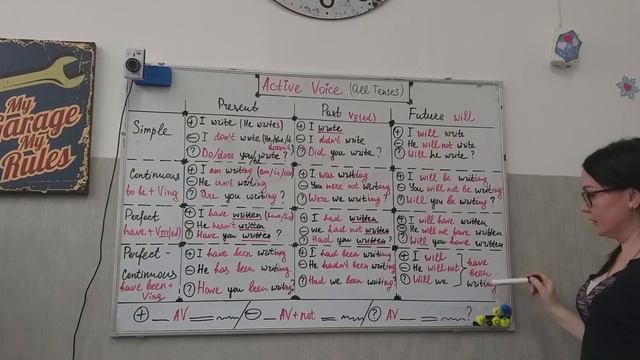 Active Voice (All Tenses)
Present Past VII(ed) Future will
Simple
+ I write (He writes)
- I don't write (He/she/it doesn't)
? Do/does you write?
+ I write
- I didn't write
? Did you write?
+ I will write
- He will not write
? Will he write?
Continuous
to be + Ving
+ I am writing (am/is/are)
- He isn't writing
? Are you writing?
+ I was writing
- You were not writing
? Were we writing?
+ I will be writing
- You will not be writing
? Will you be writing?
Perfect
have + VIII(ed)
+ I have written (have/has)
- He hasn't written
? Have you written?
+ I had written
- we had not written
? Had you written?
+ I will have written
- He will not have written
? Will you have written
Perfect -
Continuous
have been +
Ving
+ I have been writing
- He has been writing
? Have you been writing?
+ I had been writing
- He hadn't been writing
? Had we been writing?
+ I will
- He will not
? Will we
have
been
writing
+ _ AV / - _ AV + not / ? AV _ ?
My
Garage
My
Rules